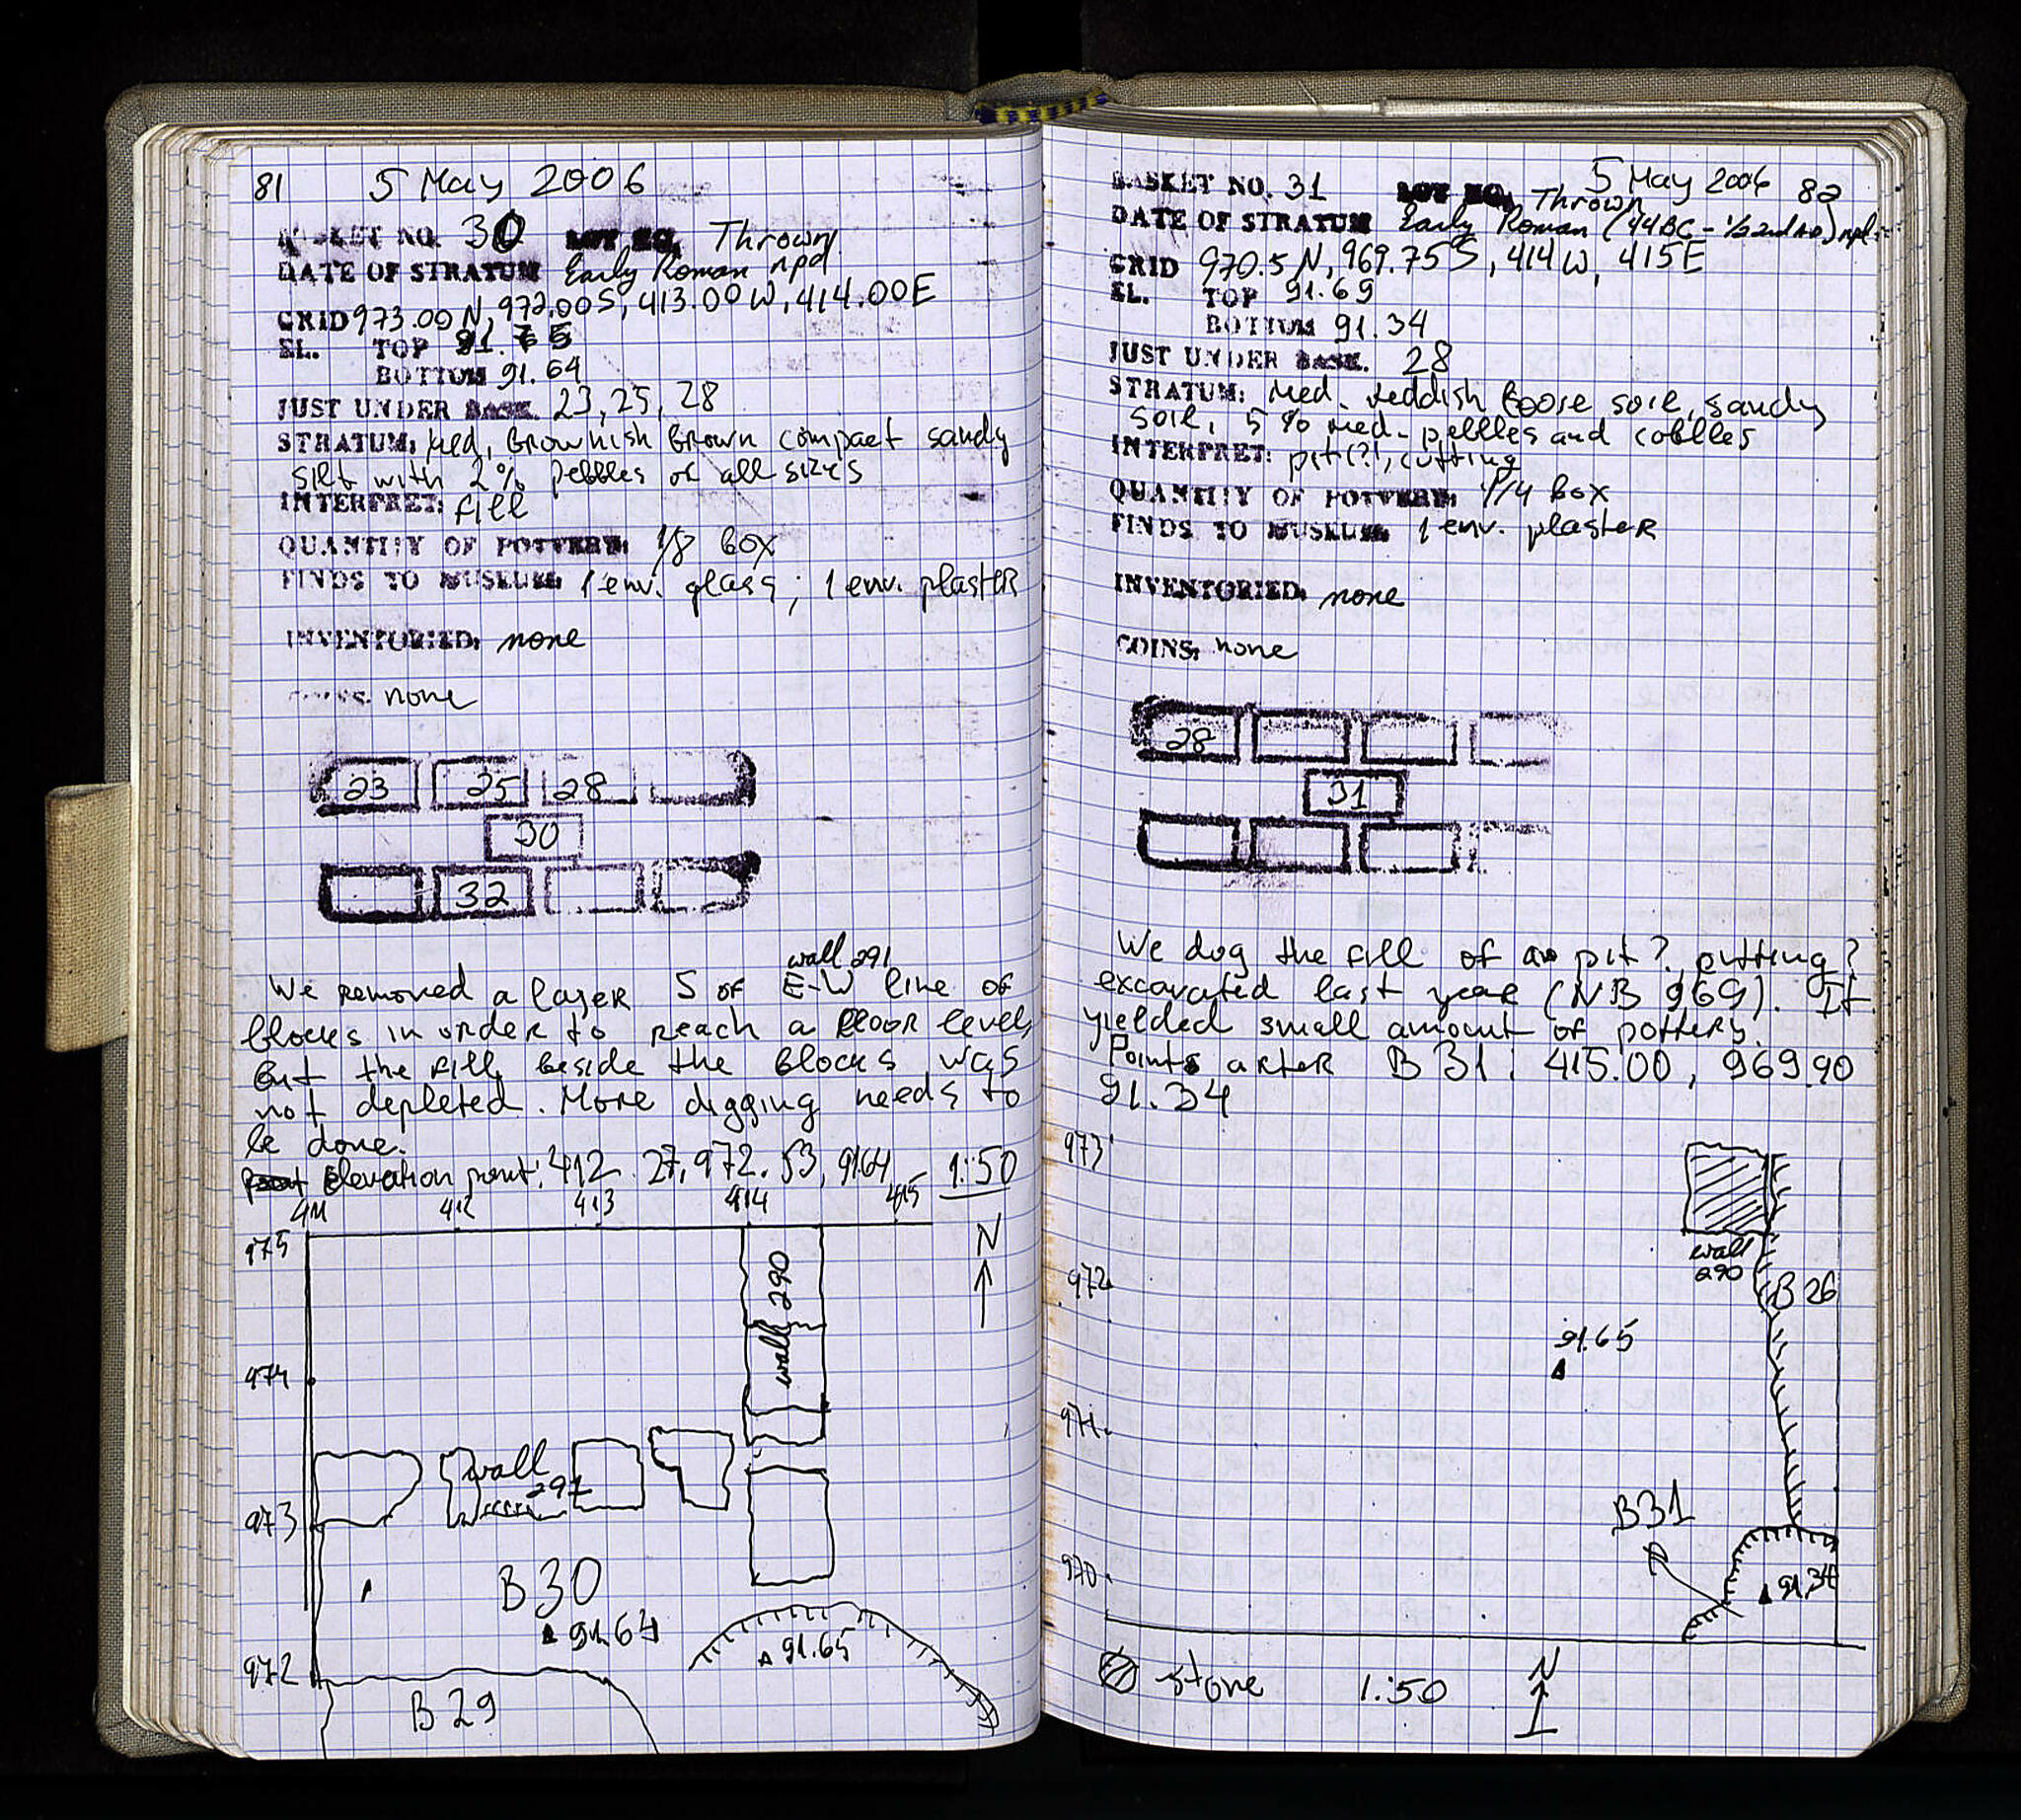 81 5 May 2006
BASKET NO. 30 LOT NO. Thrown
DATE OF STRATUM Early Roman npd
GRID 973.00 N, 972.00S, 413.00W, 414.00E
EL. TOP 91.75
BOTTOM 91.64
JUST UNDER BASK. 23, 25, 28
STRATUM: Med, Brownish Brown compact sandy
silt with 2% pebbles of all sizes
INTERPRET: fill
QUANTITY OF POTTERY: 1/8 box
FINDS TO MUSEUM: 1 env. glass; 1 env. plaster
INVENTORIED: none
COINS: none
23 25 28
30
32
wall 291
We removed a layer S of E-W line of
blocks in order to reach a floor level,
but the fill beside the blocks was
not depleted. More digging needs to
be done.
Elevation point: 412.27, 972.53, 91.64 1:50
411 412 413 414 415
975
N
wall 290
974
wall
291
973
B30
91.64
91.65
972
B29
5 May 2006 82
BASKET NO. 31 LOT NO. Thrown
DATE OF STRATUM Early Roman (44BC - 1/2 2nd AD) npd
GRID 970.5 N, 969.75S, 414W, 415E
EL. TOP 91.69
BOTTOM 91.34
JUST UNDER BASK. 28
STRATUM: Med. reddish loose soil, sandy
soil, 5% med. pebbles and cobbles
INTERPRET: pit(?), cutting
QUANTITY OF POTTERY: 1/4 box
FINDS TO MUSEUM: 1 env. plaster
INVENTORIED: none
COINS: none
28
31
We dug the fill of a pit? cutting?
excavated last year (NB 969). It
yielded small amount of pottery.
Points after B31: 415.00, 969.90
91.34
973
wall
290
972
B26
91.65
971
B31
970
91.34
stone 1:50 N